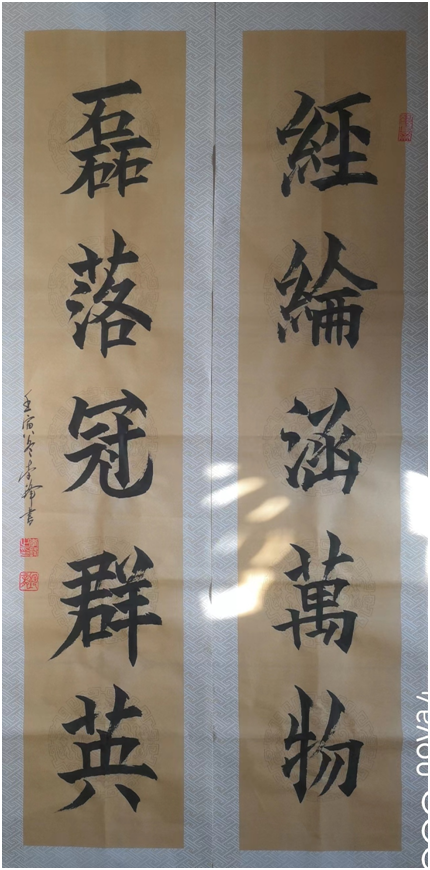 經綸涵萬物
磊落冠群英
壬寅冬李峰書